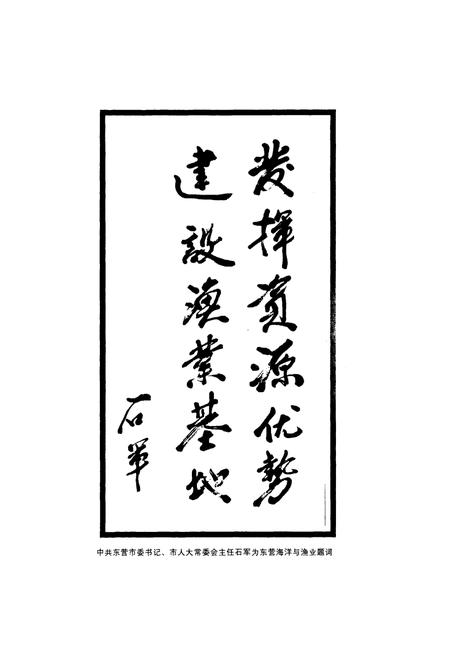 发挥資源优势
建設渔業基地
石军
中共东营市委书记、市人大常委会主任石军为东营海洋与渔业题词